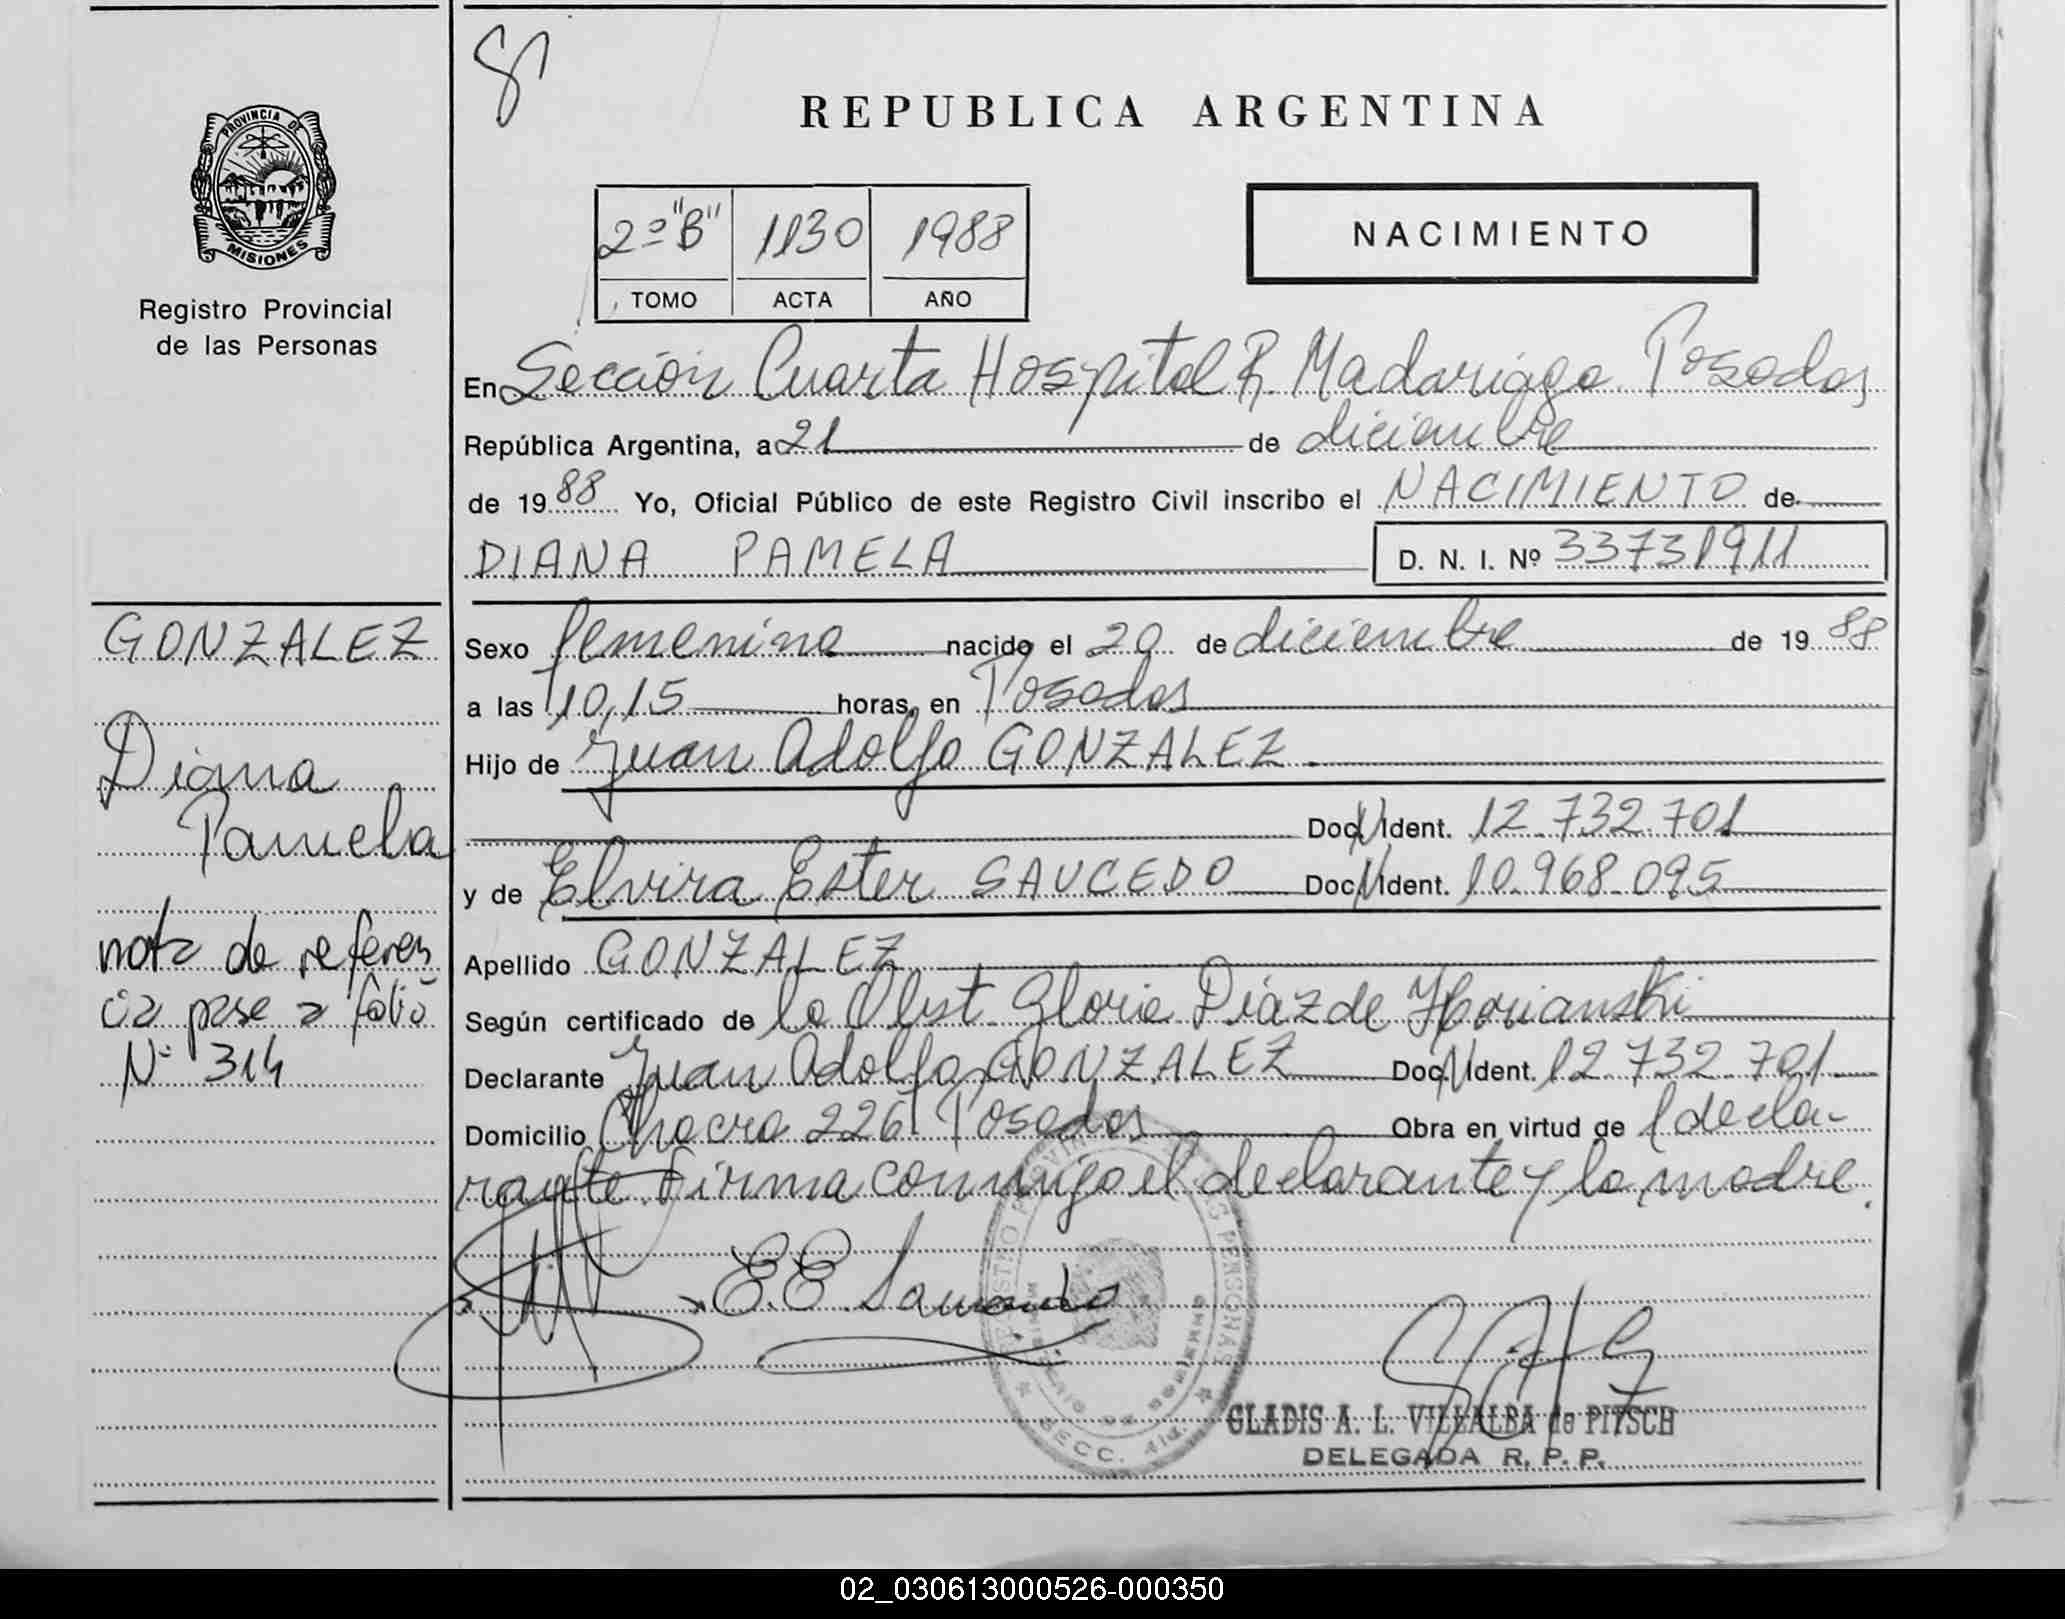 REPUBLICA ARGENTINA
PROVINCIA DE
MISIONES
Registro Provincial
de las Personas
2º "B" 1130 1988
TOMO ACTA AÑO
NACIMIENTO
En Sección Cuarta Hospital R. Madariaga Posadas
República Argentina, a 21 de diciembre
de 1988 Yo, Oficial Público de este Registro Civil inscribo el NACIMIENTO de
DIANA PAMELA D. N. I. Nº 33731911
GONZALEZ
Diana
Pamela
nota de referen
cia pase a folio
Nº 314
Sexo femenino nacido el 20 de diciembre de 1988
a las 10,15 horas, en Posadas
Hijo de Juan Adolfo GONZALEZ
Doc. N. Ident. 12.732.701
y de Elvira Ester SAUCEDO Doc. N. Ident. 10.968.095
Apellido GONZALEZ
Según certificado de la Obst. Gloria Díaz de
Declarante Juan Adolfo GONZALEZ Doc. N. Ident. 12.732.701
Domicilio Chacra 226 Posadas Obra en virtud de l decla-
rante. Firma conmigo el declarante y la madre.
E.E. Saucedo
REGISTRO PROVINCIAL DE LAS PERSONAS
MINISTERIO DE GOBIERNO
SECC. 4ta.
GLADIS A. L. VILLALBA de PITSCH
DELEGADA R. P. P.
02_030613000526-000350